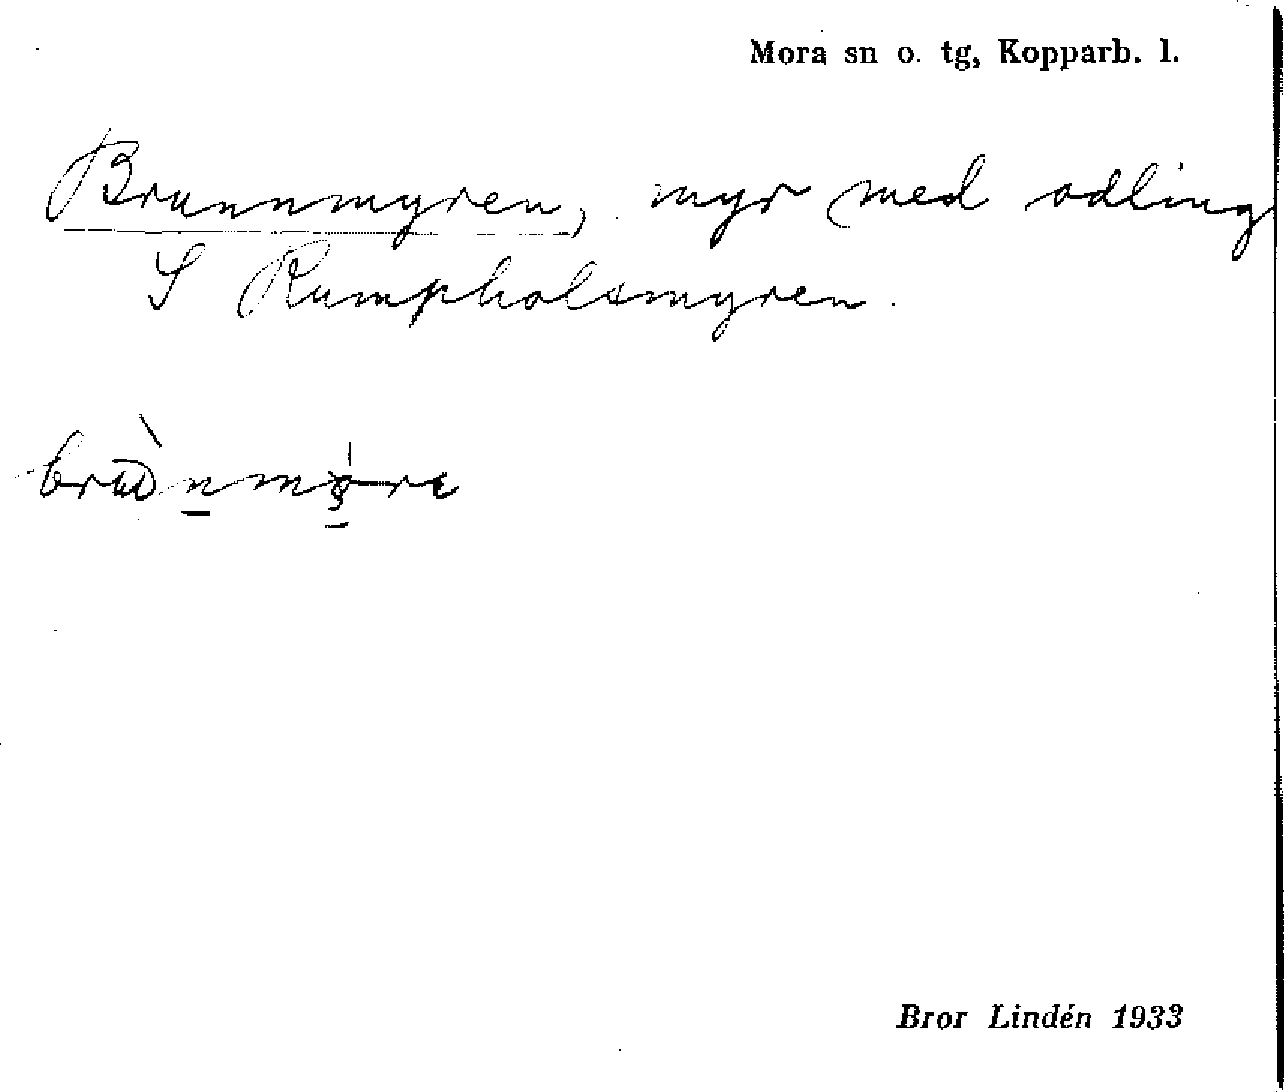 Mora sn o. tg, Kopparb. l.
Brunnmyren, myr med odling
S Rumpholsmyren.
Bror Lindén 1933